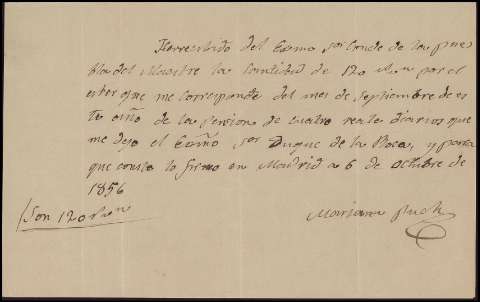 He recibido del Exmo sor Conde de la pue
bla del Maestre la Cantidad de 120 rs vn por el
haber que me corresponde del mes de Septiembre de es
te año de la pension de cuatro reales diarios que
me dejo el Exmo sor Duque de la Roca, y para
que conste lo firmo en Madrid a 6 de octubre de
1856
Son 120 rs vn
Mariano Puch